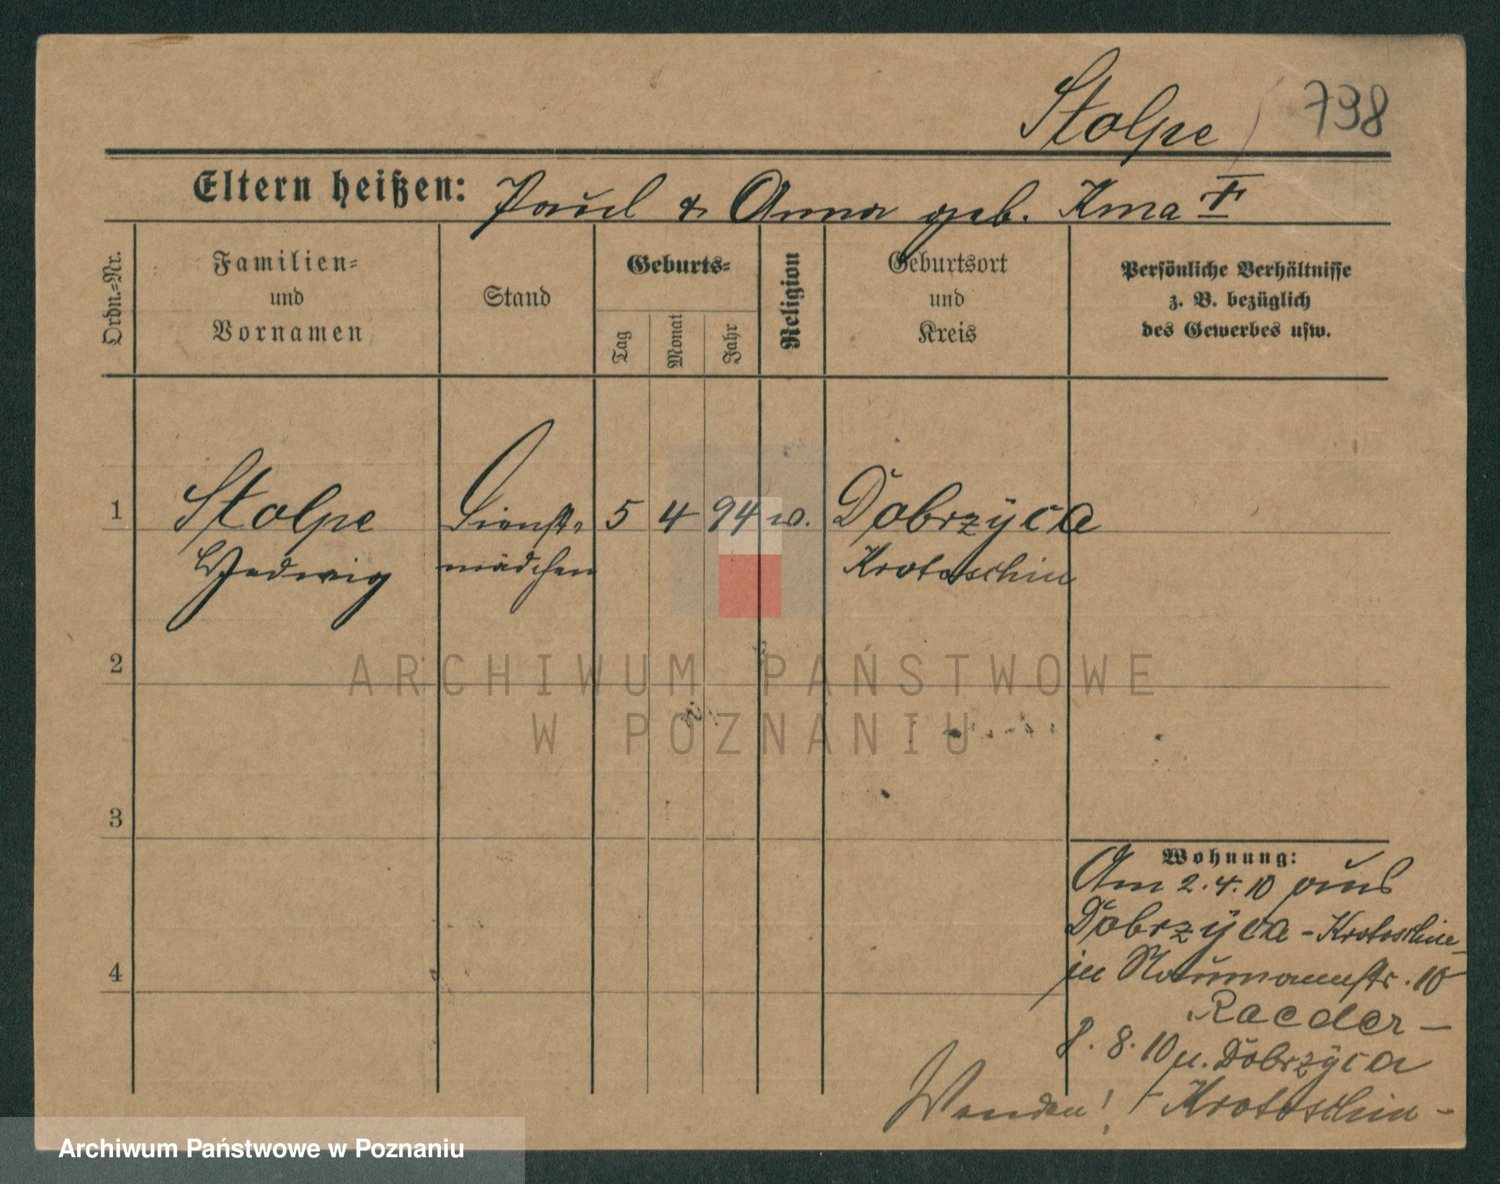 Stolpe 798
Eltern heißen: Paul & Anna geb. Kma
Ordn.-Nr.
Familien-
und
Vornamen
Stand
Geburts-
Tag
Monat
Jahr
Religion
Geburtsort
und
Kreis
Persönliche Verhältnisse
z. B. bezüglich
des Gewerbes usw.
1 Stolpe Dienst- 5 4 94 w. Dobrzyca
Hedwig mädchen Krotoschin
2
3
4
Wohnung:
Am 2.4.10 aus
Dobrzyca - Krotoschin
in Naumannstr. 10
Raeder -
8. 8. 10 n. Dobrzyca
Krotoschin -
Wenden!
ARCHIWUM PAŃSTWOWE
W POZNANIU
Archiwum Państwowe w Poznaniu